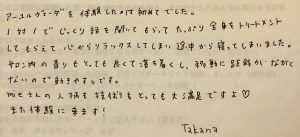 アーユルヴェーダを体験したのは初めてでした。
1対1でじっくり話を聞いてもらってたっぷり全身をトリートメント
してもらえて 心からリラックスしてしまい 途中から寝てしまいました。
サロン内の香りもとっても良くて落ち着くし、移動に距離がながく
ないので動きやすいです。
meさんの人柄も技術もとっても大満足ですよ♡
また体験に来ます!
Takana